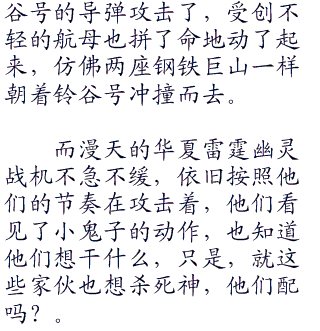 谷号的导弹攻击了，受创不
轻的航母也拼了命地动了起
来，仿佛两座钢铁巨山一样
朝着铃谷号冲撞而去。
而漫天的华夏雷霆幽灵
战机不急不缓，依旧按照他
们的节奏在攻击着，他们看
见了小鬼子的动作，也知道
他们想干什么，只是，就这
些家伙也想杀死神，他们配
吗？。